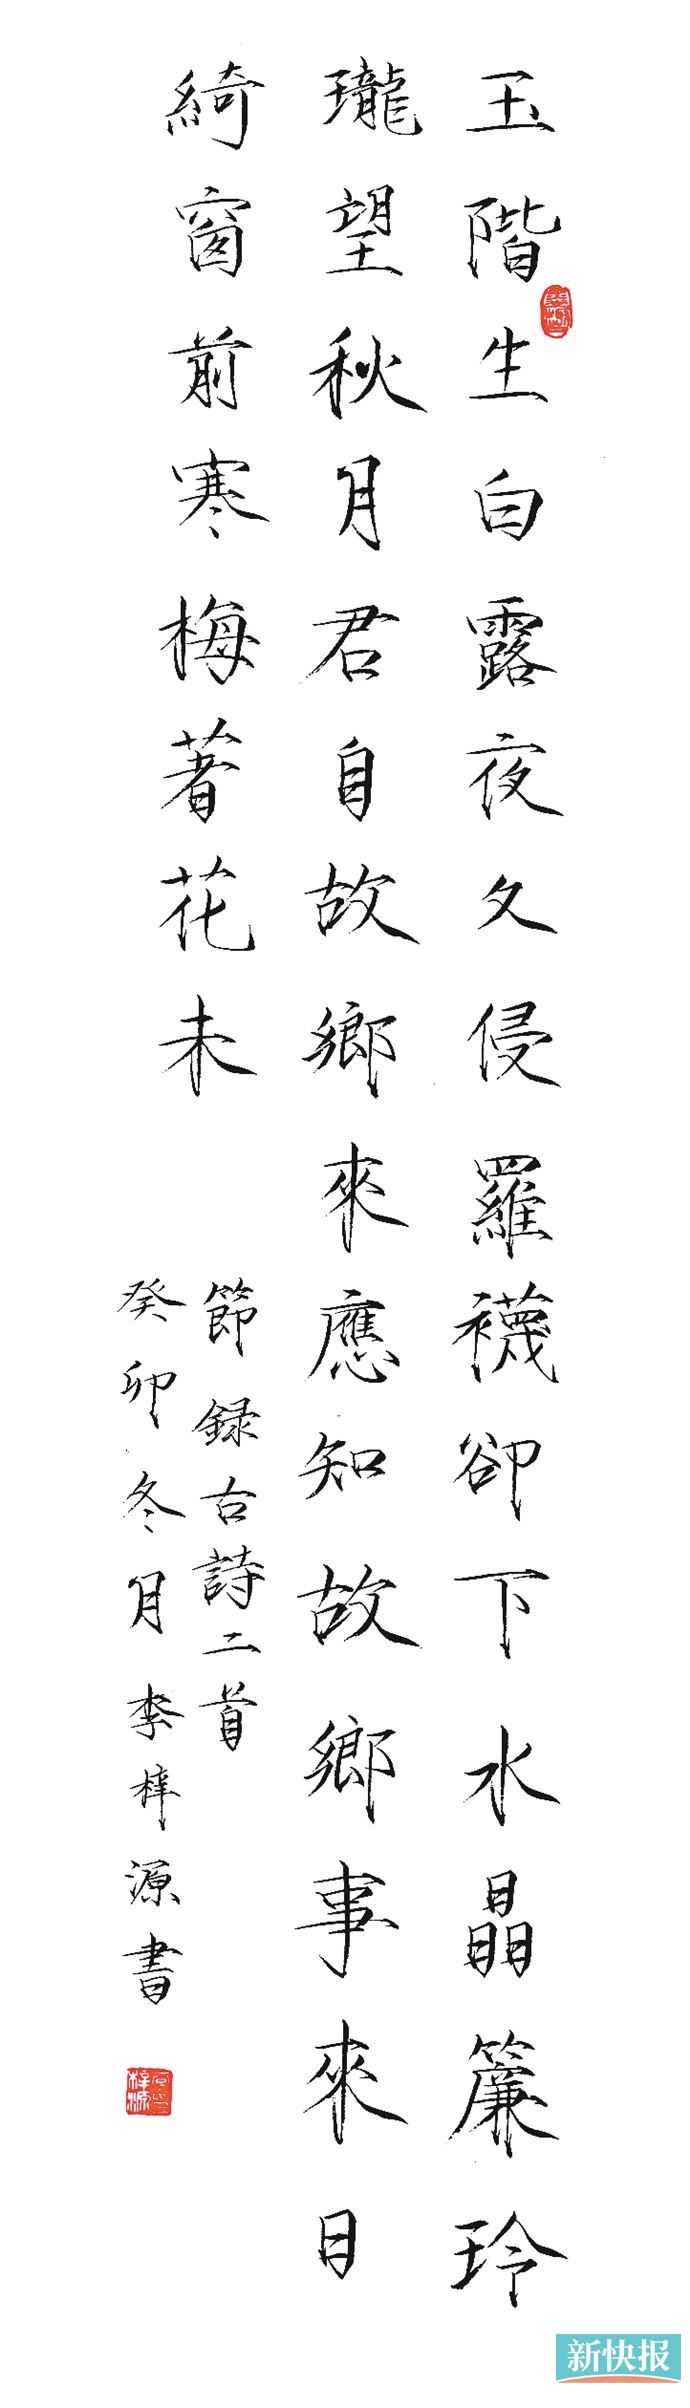 玉階生白露夜久侵羅襪卻下水晶簾玲
瓏望秋月君自故鄉來應知故鄉事來日
綺窗前寒梅著花未
節録古詩二首
癸卯冬月李梓源書
新快报